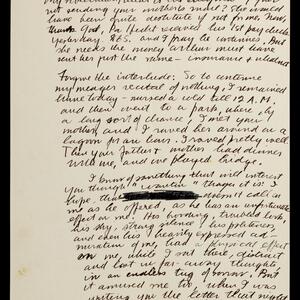 not sending your mother money; she would
have been quite destitute if not for me. Now,
thank God, Pa Hecht received his 1st pay check
yesterday, $65, and I pray it continues. But
she needs the money Arthur must have
sent her just the same - insurance &
Forgive the interlude: To continue
my meager recital of nothing, I remained
home today - nursed a cold till 12 A.M.
and then went to a park, where, by
a lazy sort of chance, I met your
mother and I rowed her around on a
lagoon for an hour. I rowed pretty well.
Then your father & mother had dinner
with me, and we played bridge.
I know of something that will interest
you though
hope that doesn't call on
me as he offered, as he has an unfortunate
effect on me. His brooding, troubled look,
his shy, strong silence, his politeness,
and even his heavily expressed ad-
miration of me, had a physical effect
on me, while I sat there, distant
and lost in far-away thoughts
in an endless tug of sorrow. But
it amused me too, when I was
writing you the letter that night